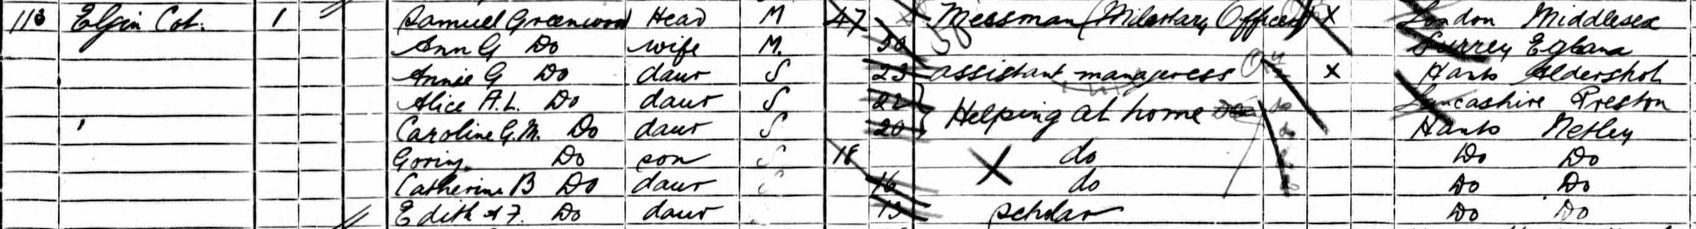 113 Elgin Cot. 1 Samuel Greenwood Head M 47 Messman (Military Officers) X London Middlesex
Ann G Do wife M. 50 Surrey Egland
Annie G Do daur S 23 assistant manageress X Hants Aldershot
Alice A.L. Do daur S 22 } Helping at home Lancashire Preston
Caroline G.M. Do daur S 20 Hants Netley
Goring Do son S 18 X do Do Do
Catherine B Do daur S 16 do Do Do
Edith A F. Do daur 13 scholar Do Do